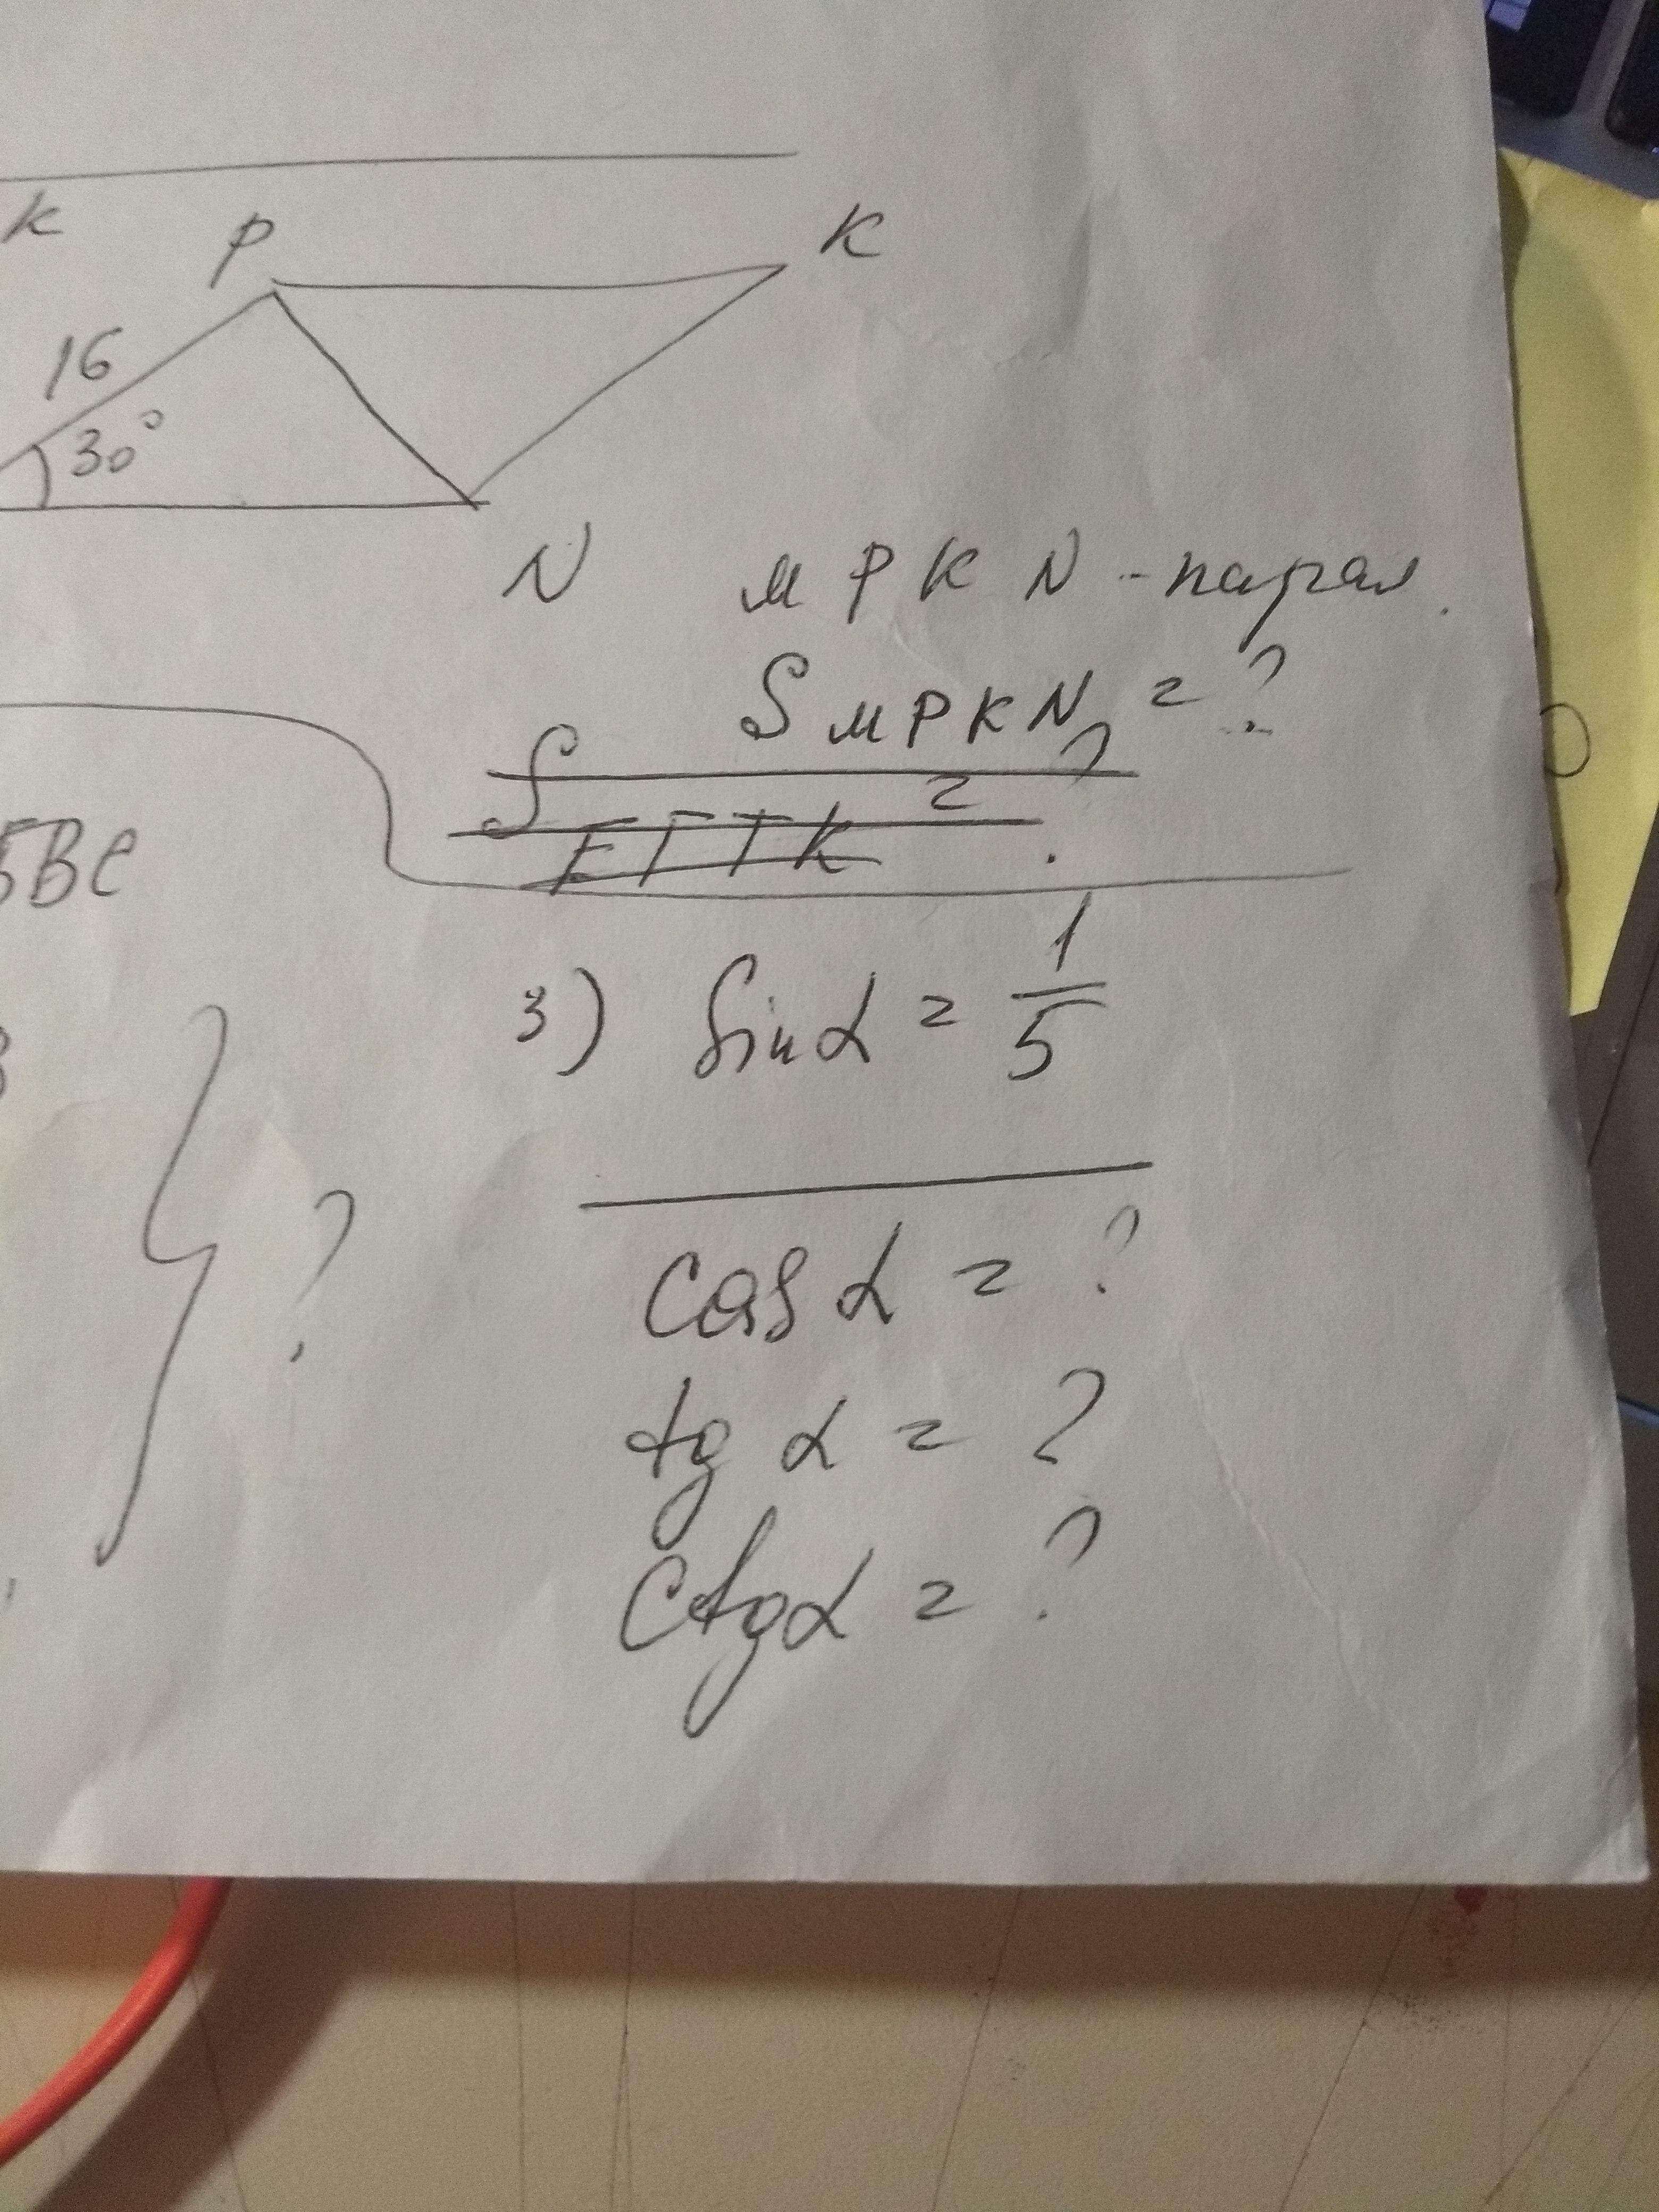 K
P
K
16
30°
N
МРКN - парал.
S МРКN = ?
S EFTK = ?
5BC
3) Sin α = 1/5
?
cos α = ?
tg α = ?
ctg α = ?